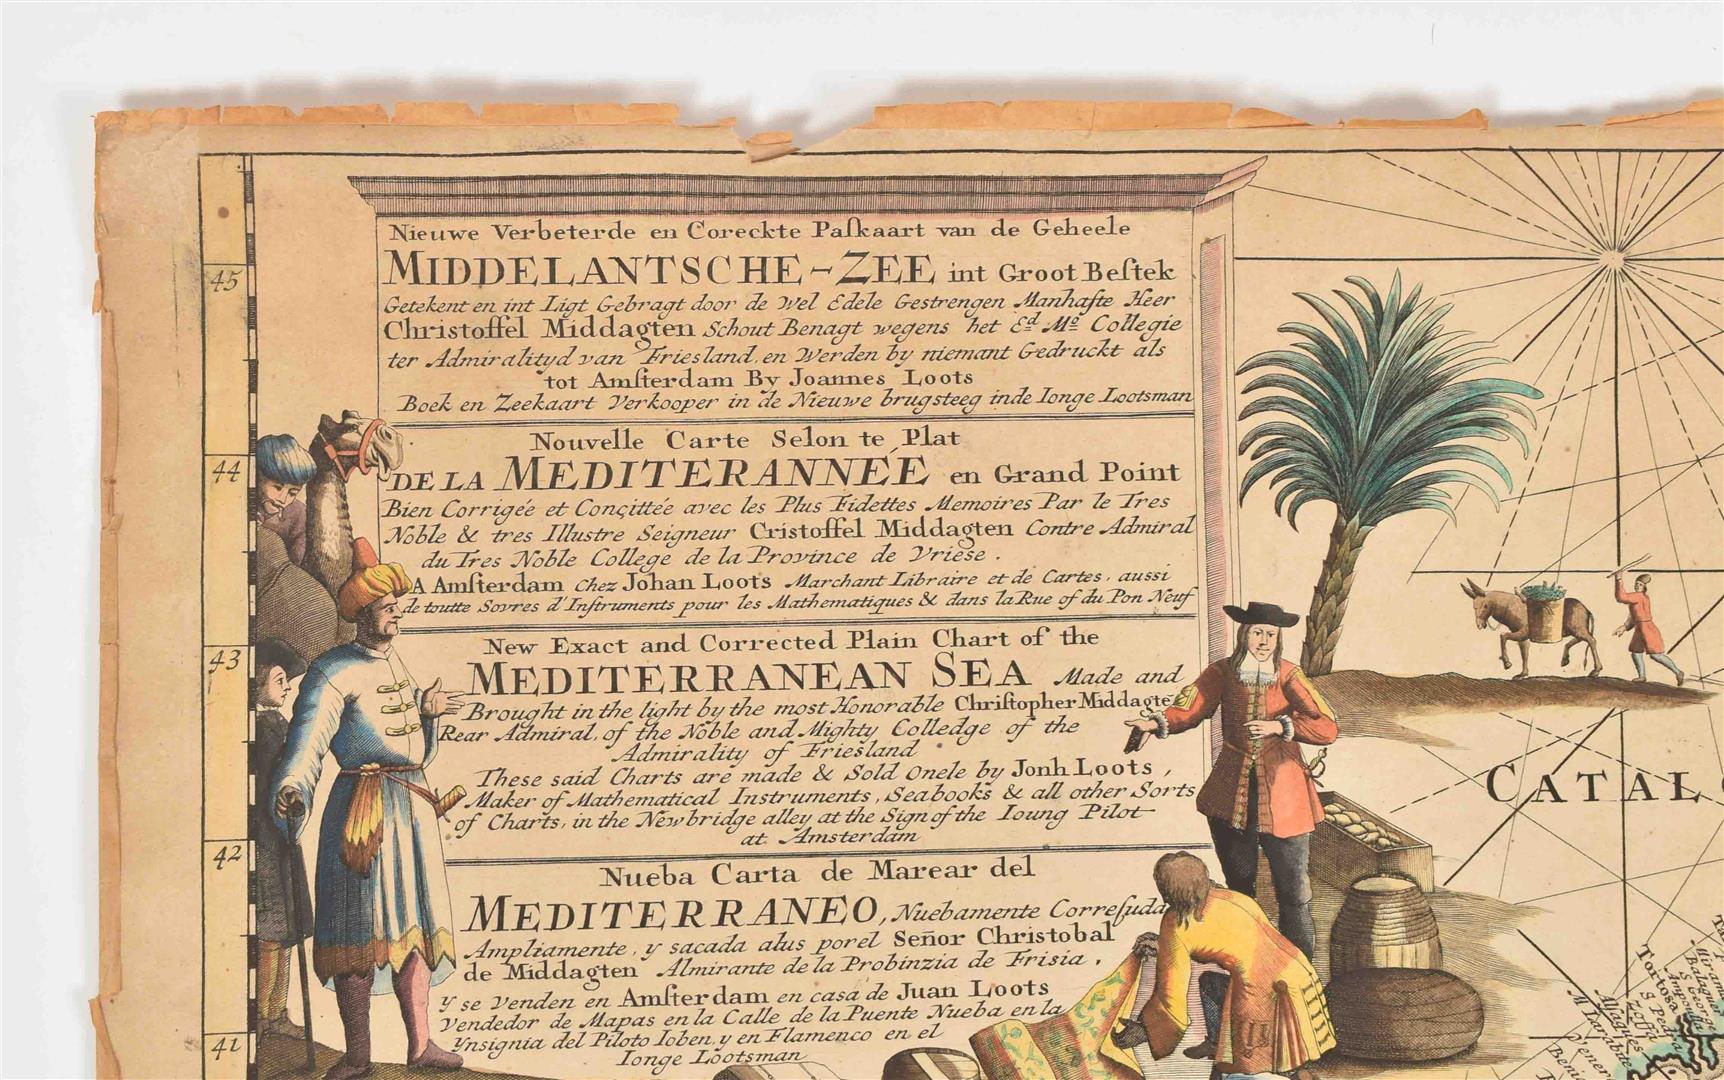 Nieuwe Verbeterde en Coreckte Paſkaart van de Geheele
MIDDELANTSCHE-ZEE int Groot Beſtek
Getekent en int Ligt Gebragt door de wel Edele Gestrengen Manhafte Heer
Christoffel Middagten Schout Benagt wegens het Ed Mo Collegie
ter Admiralityd van Friesland, en Werden by niemant Gedruckt als
tot Amſterdam By Joannes Loots
Boek en Zeekaart Verkooper in de Nieuwe brugsteeg inde Ionge Lootsman
Nouvelle Carte Selon te Plat
DE LA MEDITERANNÉE en Grand Point
Bien Corrigée et Conçittée avec les Plus Fidettes Memoires Par le Tres
Noble & tres Illustre Seigneur Cristoffel Middagten Contre Admiral
du Tres Noble College de la Province de Vriese.
A Amſterdam Chez Johan Loots Marchant Libraire et de Cartes, aussi
de toutte Sovres d'Inſtruments pour les Mathematiques & dans la Rue of du Pon Neuf
New Exact and Corrected Plain Chart of the
MEDITERRANEAN SEA Made and
Brought in the light by the most Honorable Chriſtopher Middagtē
Rear Admiral, of the Noble and Mighty Colledge of the
Admirality of Friesland
These said Charts are made & Sold Onele by Jonh Loots,
Maker of Mathematical Instruments, Seabooks & all other Sorts
of Charts, in the Newbridge alley at the Sign of the Ioung Pilot
at Amsterdam
Nueba Carta de Marear del
MEDITERRANEO, Nuebamente Correſuda
Ampliamente, y sacada alus porel Señor Christobal
de Middagten Almirante de la Probinzia de Frisia,
y se venden en Amſterdam en casa de Juan Loots
Vendedor de Mapas en la Calle de la Puente Nueba en la
Ynsignia del Piloto Ioben, y en Flamenco en el
Ionge Lootsman
45
44
43
42
41
CATAL
Tortosa
S. Pedr